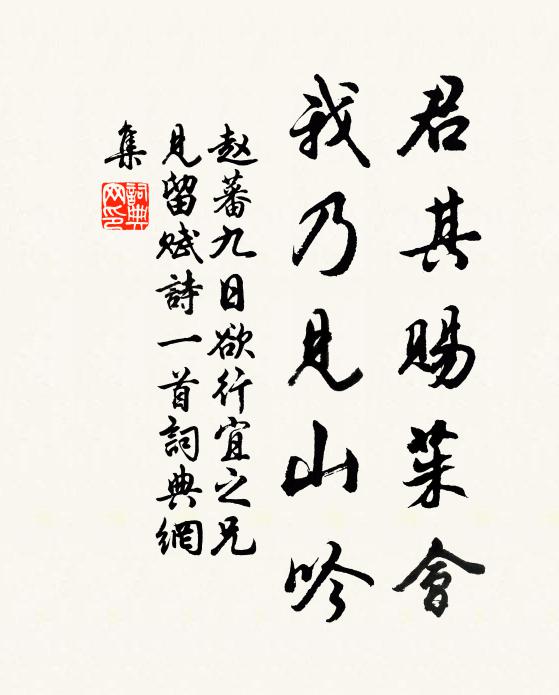 君其賜茱會
我乃見山吟
赵蕃九日欲行宜之兄
見留赋詩一首詞典網
集
詞典
网印